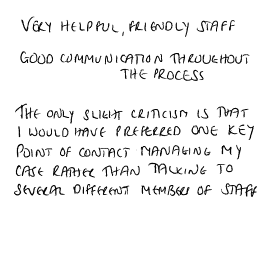 VERY HELPFUL, FRIENDLY STAFF
GOOD COMMUNICATION THROUGHOUT
THE PROCESS
THE ONLY SLIGHT CRITICISM IS THAT
I WOULD HAVE PREFERRED ONE KEY
POINT OF CONTACT MANAGING MY
CASE RATHER THAN TALKING TO
SEVERAL DIFFERENT MEMBERS OF STAFF